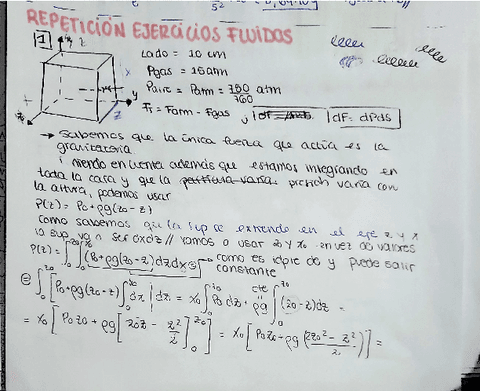 REPETICIÓN EJERCICIOS FLUIDOS
1
Lado = 10 cm
Pgas = 15 atm
Paire = Patm = 750/760 atm
dF = dPdS
→ Sabemos que la única fuerza que actúa es la
gravitatoria
niendo en cuenta además que estamos integrando en
toda la cara y que la presión varía con
la altura, podemos usar
P(z) = P0 + ρg(z0 - z)
como sabemos que la sup se extiende en el eje z y x
la sup va a ser dxdz // vamos a usar z0 y x0 en vez de valores
P(z) = ∫∫ (P0 + ρg(z0 - z) dzdx → como es idpte de y puede salir
constante
∫ [P0 + ρg(z0 - z) ∫ dx] dx = x0 ∫ P0 dz + ρg ∫ (z0 - z) dz =
cte
= x0 [P0 z0 + ρg [z0z - z²/2] ] = x0 [P0 z0 + ρg (2z0² - z²/2)] =